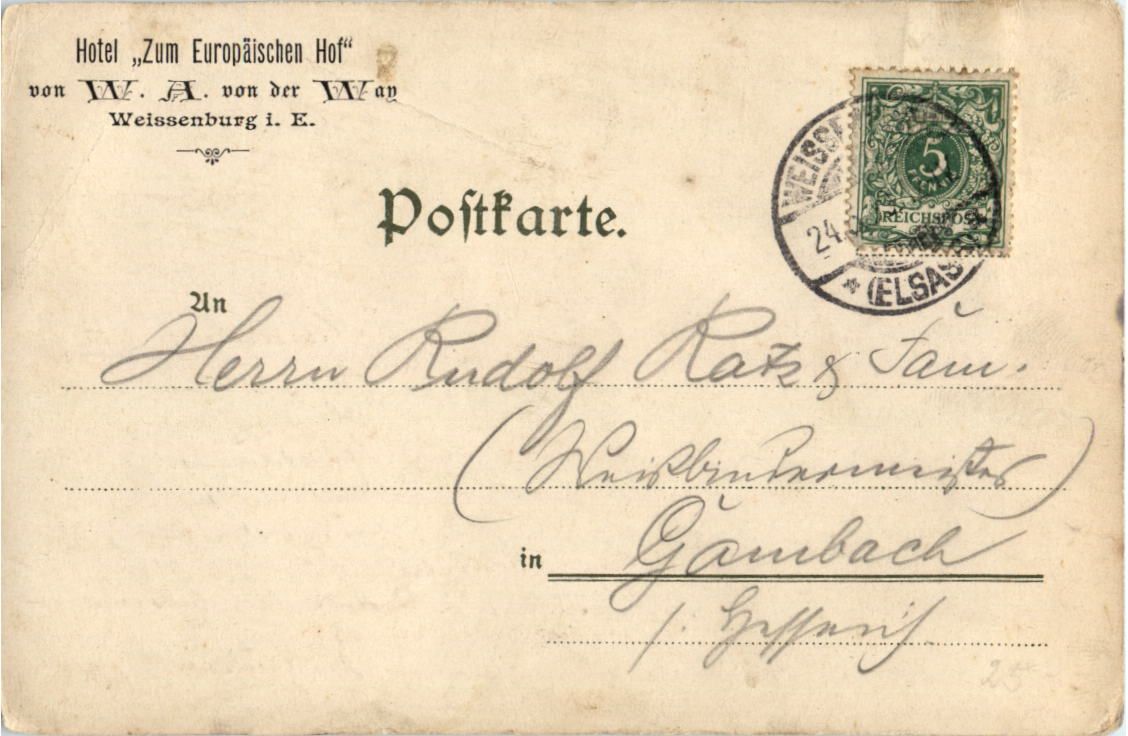 Hotel „Zum Europäischen Hof“
von W. A. von der Way
Weissenburg i. E.
Postkarte.
5
PFENNIG
REICHSPOST
WEISSE
24.
* (ELSASS)
An
Herrn Rudolf Ratz & Fam.
(Weißbindermeister)
in Gambach
i. Hessen
25